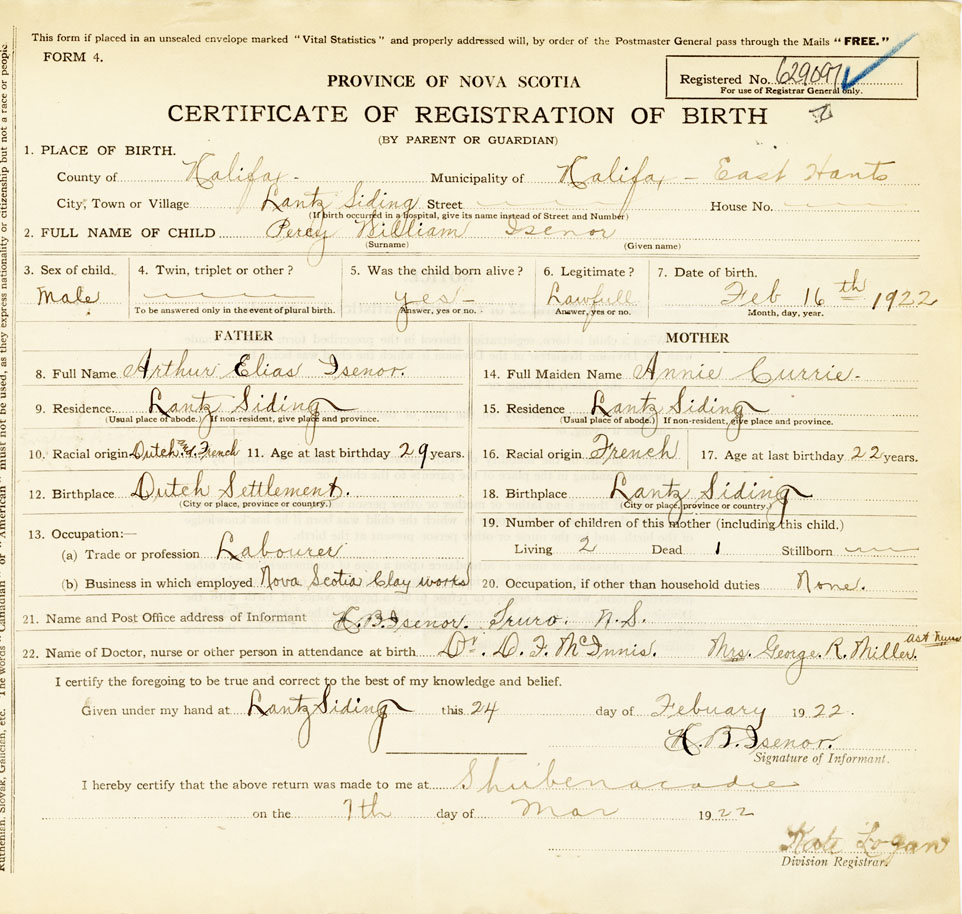 This form if placed in an unsealed envelope marked "Vital Statistics" and properly addressed will, by order of the Postmaster General pass through the Mails "FREE."
FORM 4.
Registered No. 629097
For use of Registrar General only.
PROVINCE OF NOVA SCOTIA
CERTIFICATE OF REGISTRATION OF BIRTH
(BY PARENT OR GUARDIAN)
1. PLACE OF BIRTH.
County of Halifax - Municipality of Halifax - East Hants
City, Town or Village Lantz Siding Street House No.
(If birth occurred in a hospital, give its name instead of Street and Number)
2. FULL NAME OF CHILD Percy William Isenor
(Surname) (Given name)
3. Sex of child. 4. Twin, triplet or other? 5. Was the child born alive? 6. Legitimate? 7. Date of birth.
Male yes- Lawfull Feb 16th 1922
To be answered only in the event of plural birth. Answer, yes or no. Answer, yes or no. Month, day, year.
FATHER
8. Full Name Arthur Elias Isenor.
9. Residence Lantz Siding
(Usual place of abode.) If non-resident, give place and province.
10. Racial origin Dutch & French 11. Age at last birthday 29 years.
12. Birthplace Dutch Settlement.
(City or place, province or country.)
13. Occupation:—
(a) Trade or profession Labourer
(b) Business in which employed Nova Scotia Clay works
MOTHER
14. Full Maiden Name Annie Currie-
15. Residence Lantz Siding
(Usual place of abode.) If non-resident, give place and province.
16. Racial origin French 17. Age at last birthday 22 years.
18. Birthplace Lantz Siding
(City or place, province or country.)
19. Number of children of this mother (including this child.)
Living 2 Dead 1 Stillborn
20. Occupation, if other than household duties None.
21. Name and Post Office address of Informant H. B. Isenor. Truro. N.S.
22. Name of Doctor, nurse or other person in attendance at birth Dr. D. F. McInnis. Mrs. George. R. Miller.
I certify the foregoing to be true and correct to the best of my knowledge and belief.
Given under my hand at Lantz Siding this 24 day of Febuary 1922.
H. B. Isenor.
Signature of Informant.
I hereby certify that the above return was made to me at Shubenacadie
on the 7th day of Mar 1922
Kate Logan
Division Registrar.
Ruthenian, Slovak, Galician, etc. The words "Canadian" or "American" must not be used, as they express nationality or citizenship but not a race or people.